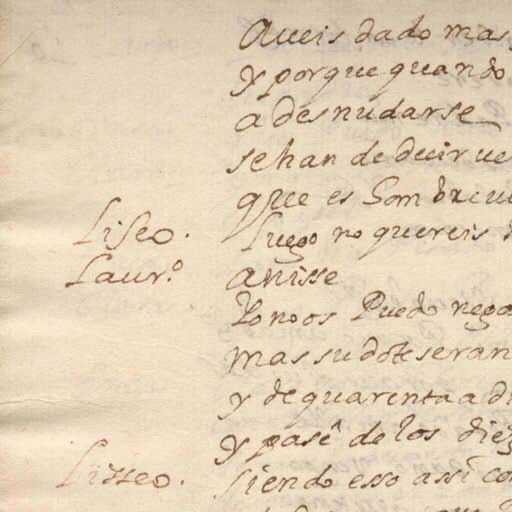 aueis dado mas
y porque quando
a desnudarse
se han de decir ue
que es hombre
Liseo. Luego no quereis
Laurº. a nisse
Yo no os Puedo nega
mas su dote seran
y de quarenta a
y pasê de los diez
Lisseo. siendo esso assi co